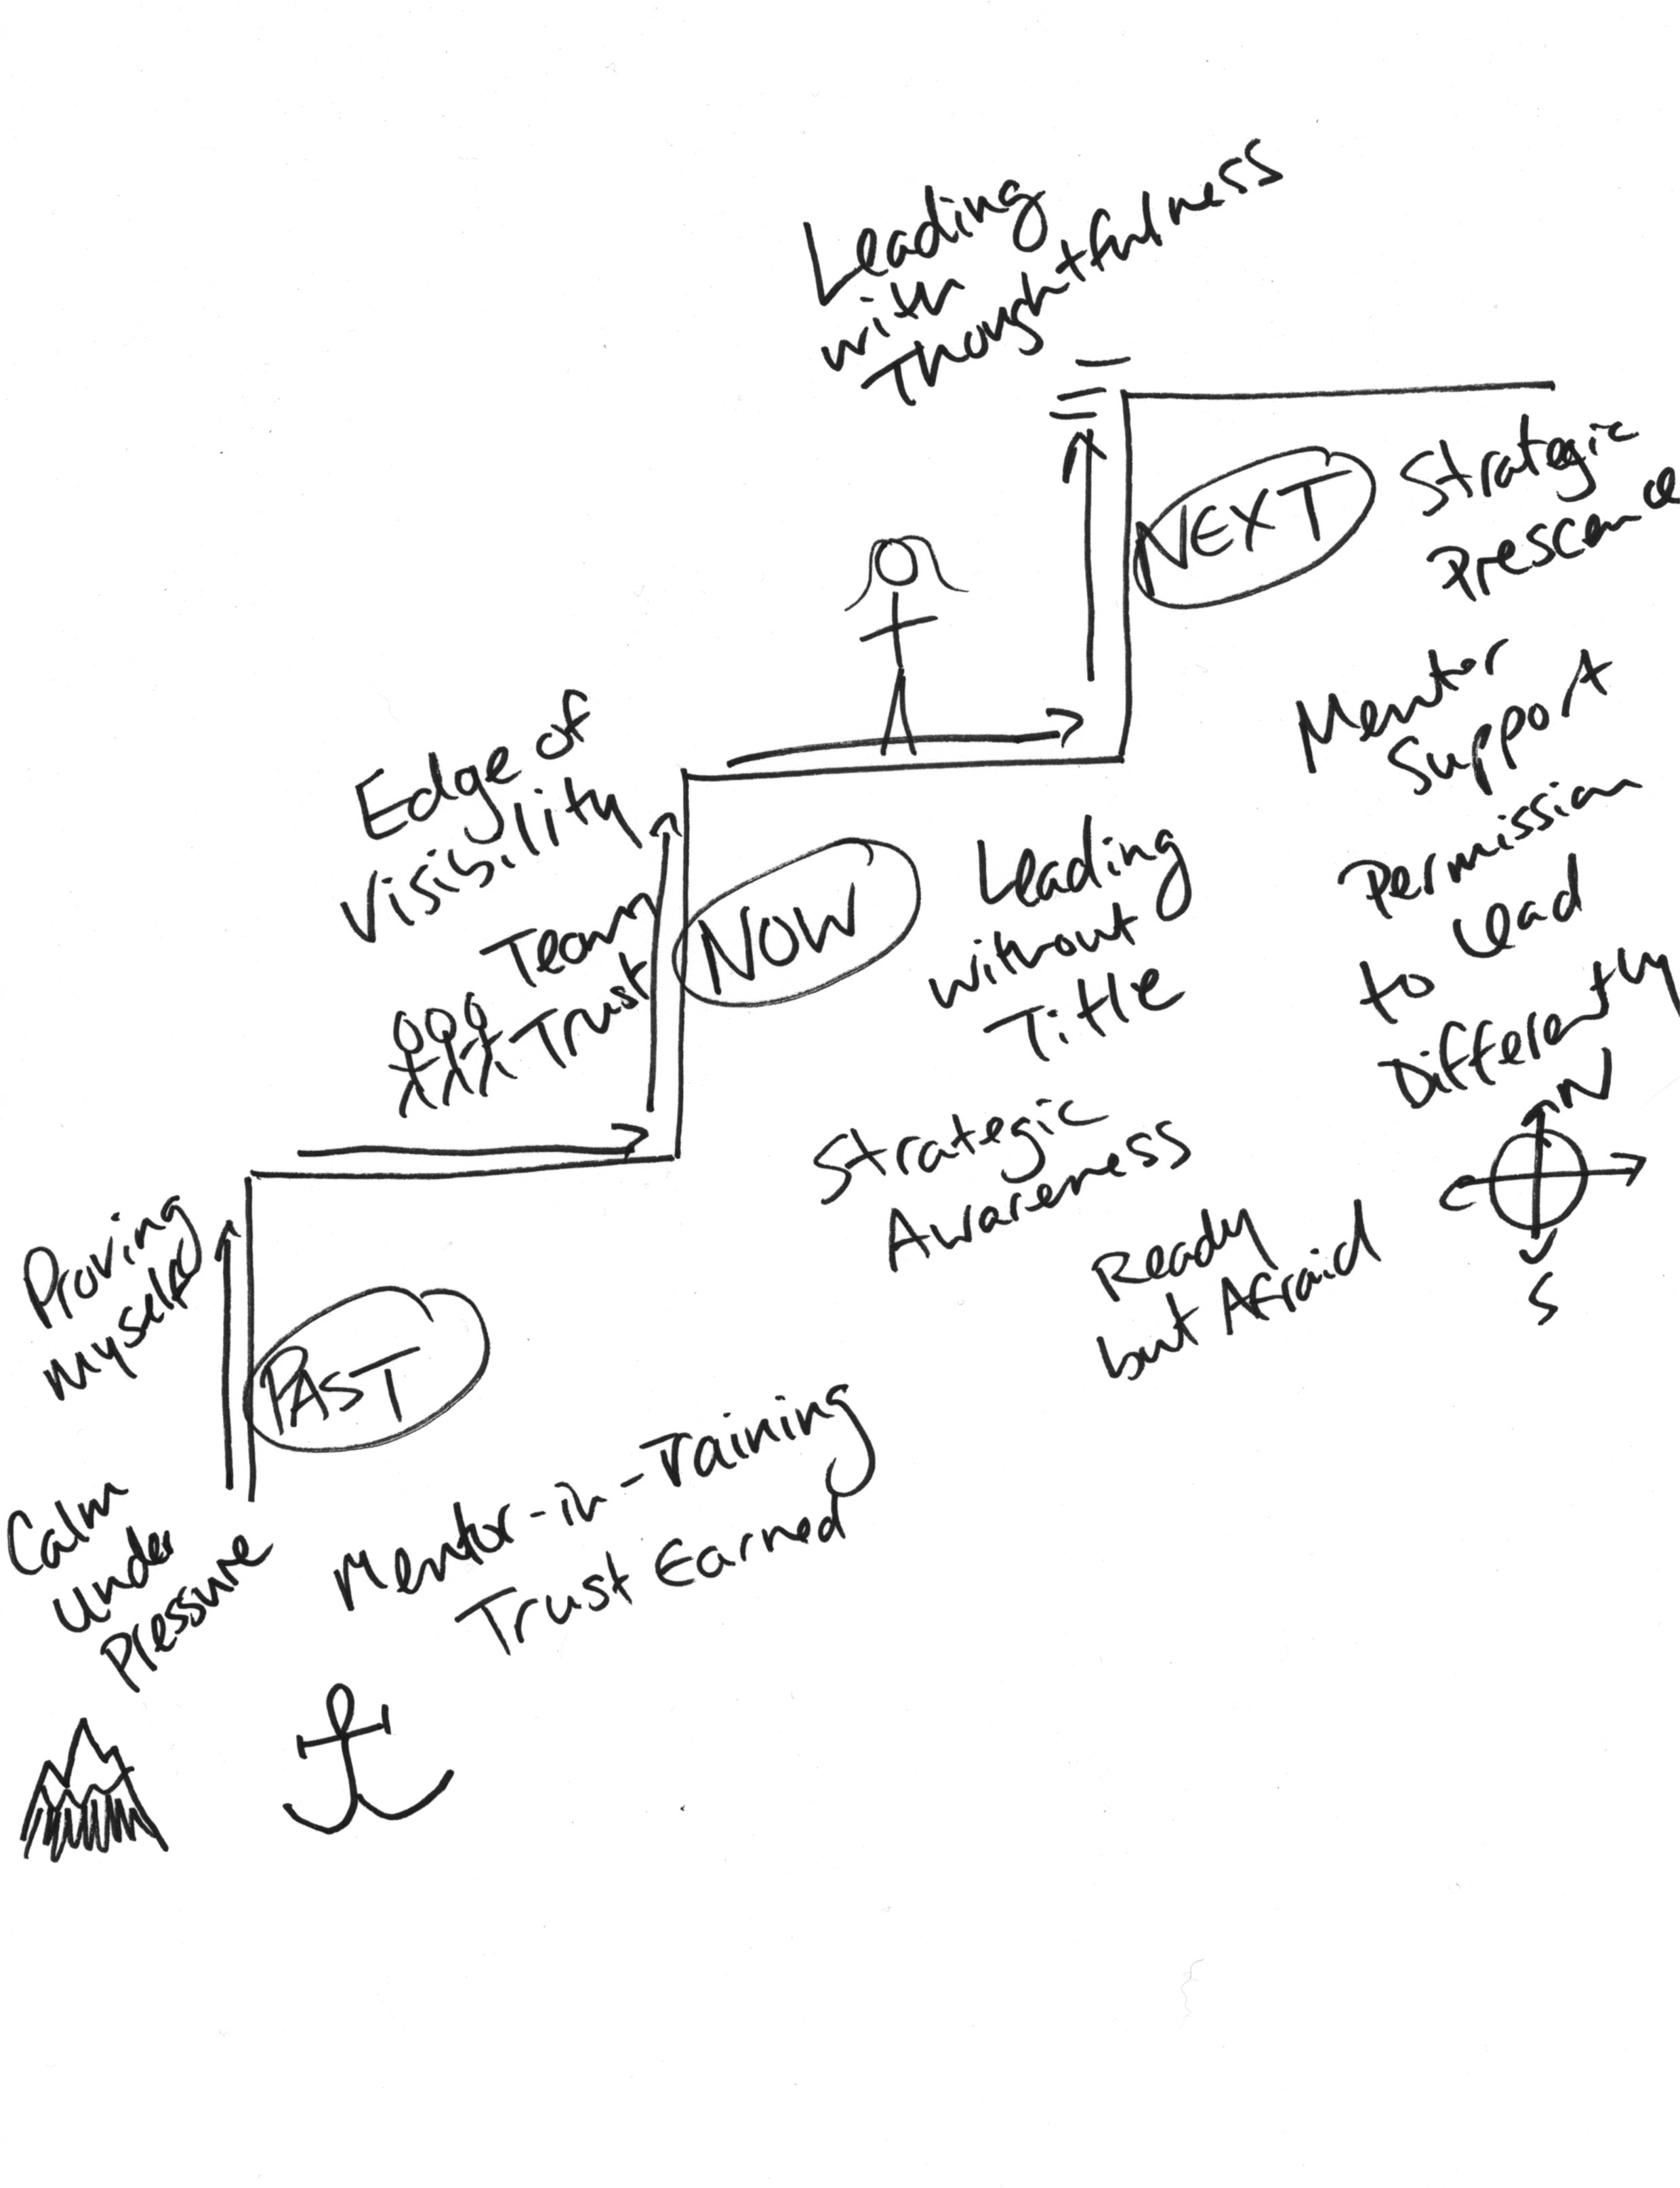 Leading
with
Thoughtfulness
NEXT
Strategic
Mentor
Support
Permission
to Lead
Differently
N
S
Edge of
Visibility
Team
Trust
NOW
Leading
without
Title
Strategic
Awareness
Ready
but Afraid
Proving
Myself
PAST
Calm
Under
Pressure
Mentor-in-Training
Trust Earned